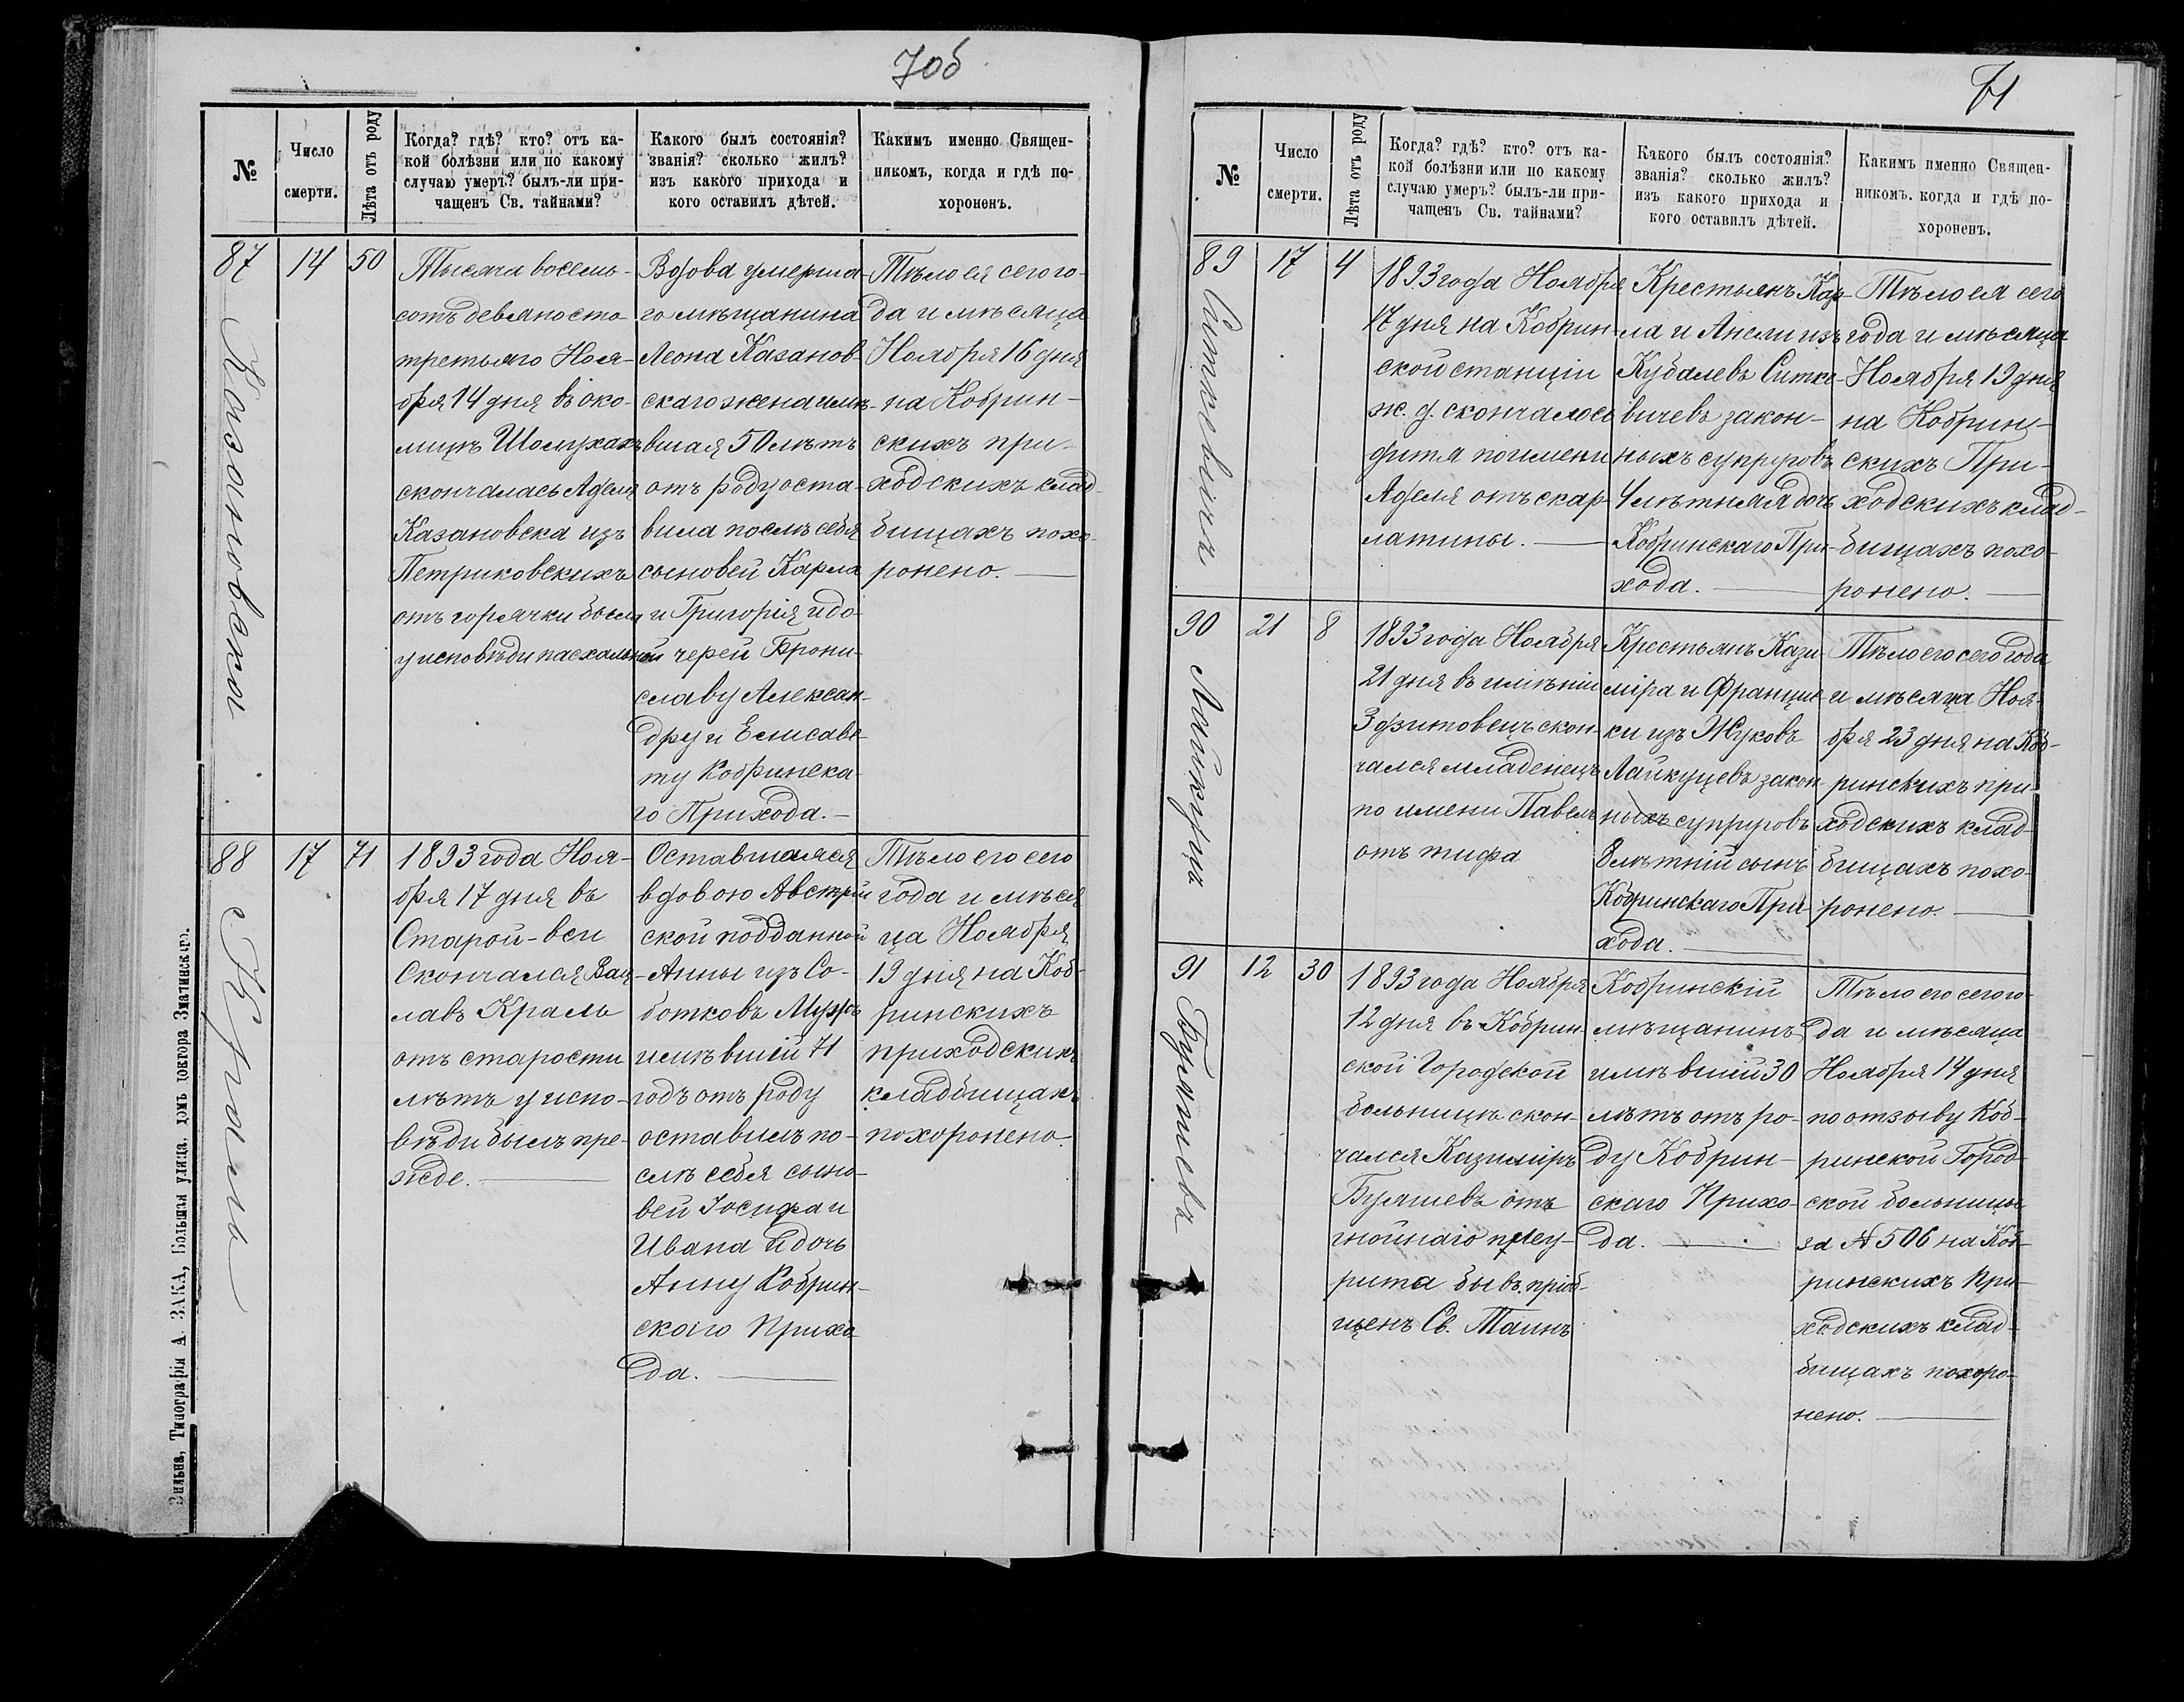 70б
№
Число
смерти.
Лѣта отъ роду
Когда? гдѣ? кто? отъ ка-
кой болѣзни или по какому
случаю умеръ? былъ-ли при-
чащенъ Св. тайнами?
Какого былъ состоянія?
званія? сколько жилъ?
изъ какого прихода и
кого оставилъ дѣтей.
Какимъ именно Священ-
никомъ, когда и гдѣ по-
хороненъ.
87
Казановска
14
50
Тысяча восемь-
сотъ девяносто
третьяго Ноя-
бря 14 дня въ око-
лицѣ Шолухахъ
скончалась Аделя
Казановска изъ
Петриковскихъ
отъ горячки была
у исповѣди пасхальной
Вдова умерша-
го мѣщанина
Леона Казанов-
скаго жена имѣ-
вшая 50 лѣтъ
отъ роду оста-
вила послѣ себя
сыновей Карла
и Григорія и до-
черей Брони-
славу Алексан-
дру и Елисаве-
ту Кобринска-
го Прихода.
Тѣло ея сего го-
да и мѣсяца
Ноября 16 дня
на Кобрин-
скихъ при-
ходскихъ клад-
бищахъ похо-
ронено.
88
Краль
17
71
1893 года Ноя-
бря 17 дня въ
Старой-вси
Скончался Вац-
лавъ Краль
отъ старости
лѣтъ у испо-
вѣди былъ пре-
жде.
Оставшаяся
вдовою Австрій
ской подданной
Анны изъ Со-
ботковъ Мужъ
имѣвшій 71
годъ отъ роду
оставилъ по-
слѣ себя сыно-
вей Іосифа и
Ивана и дочь
Анну Кобрин-
скаго Прихо
да.
Тѣло его сего
года и мѣся
ца Ноября
19 дня на Коб-
ринскихъ
приходскихъ
кладбищахъ
похоронено.
Вильна, Типографія А. ЗАКА, Большая улица, домъ доктора Зматинскаго.
71
№
Число
смерти.
Лѣта отъ роду
Когда? гдѣ? кто? отъ ка-
кой болѣзни или по какому
случаю умеръ? былъ-ли при-
чащенъ Св. тайнами?
Какого былъ состоянія?
званія? сколько жилъ?
изъ какого прихода и
кого оставилъ дѣтей.
Какимъ именно Священ-
никомъ. когда и гдѣ по-
хороненъ.
89
Ситкевичъ
17
4
1893 года Ноября
17 дня на Кобрин-
ской станціи
ж. д. скончалось
дитя по имени
Аделя отъ скар-
латины.
Крестьянъ Кар-
ла и Анели изъ
Кубалевъ Ситке-
вичевъ закон-
ныхъ супруговъ
4 лѣтняя дочь
Кобринскаго При-
хода.
Тѣло ея сего
года и мѣсяца
Ноября 19 дня
на Кобрин-
скихъ При-
ходскихъ клад-
бищахъ похо-
ронено.
90
Лайкуца
21
8
1893 года Ноября
21 дня въ имѣніи
Здзитовецъ скон-
чался младенецъ
по имени Павелъ
отъ тифа
Крестьянъ Кази-
міра и Францис-
ки изъ Жуковъ
Лайкуцевъ закон-
ныхъ супруговъ
8 лѣтній сынъ
Кобринскаго При-
хода.
Тѣло его сего года
и мѣсяца Ноя-
бря 23 дня на Коб-
ринскихъ при-
ходскихъ клад-
бищахъ похо-
ронено.
91
12
30
1893 года Ноября
12 дня въ Кобрин
ской Городской
больницѣ скон-
чался Казиміръ
отъ
гнойнаго плев-
рита бывъ пріоб-
щенъ Св. Таинъ
Кобринскій
мѣщанинъ
имѣвшій 30
лѣтъ отъ ро-
ду Кобрин-
скаго Прихо-
да.
Тѣло его сего го-
да и мѣсяца
Ноября 14 дня
по отзыву Коб-
ринской Город-
ской больницы
за № 506 на Коб-
ринскихъ при-
ходскихъ клад-
бищахъ похоро-
нено.